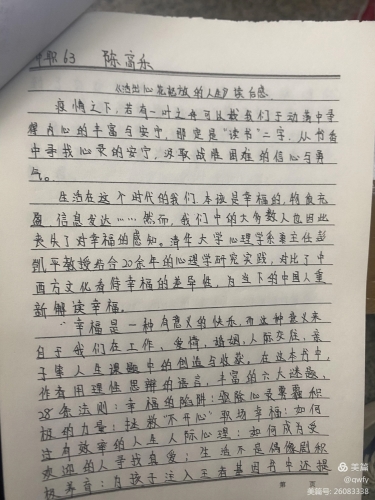 中职63 陈高乐
《活出心花怒放的人生》读后感
疫情之下,若有一叶之舟可以载我们于动荡中掌
握内心的丰富与安宁,那定是“读书”二字,从书香
中寻找心灵的安宁,汲取战胜困难的信心与勇
气。
生活在这个时代的我们,本该是幸福的,物食充
盈,信息发达……然而,我们中的大多数人也因此
丧失了对幸福的感知。清华大学心理学系系主任彭
凯平教授结合20余年的心理学研究实践,对比了中
西方文化看待幸福的差异性,为当下的中国人重
新解读幸福。
“幸福是一种有意义的快乐,而这种意义来
自于我们在工作、爱情、婚姻、人际交往、亲
子等人生课题中的创造与收获。在这本书中,
作者用理性思辨的语言,丰富的六大迷题,
28条法则:幸福的陷阱;驱除心灵雾霾积
极的力量;拯救“不开心”职场幸福:如何
过有效率的人生人际心理:如何成为受
欢迎的人寻找真爱:生活不是偶像剧积
极养育:为孩子注入正者基因书中还提
第 页
美篇
@qwfy
美篇号: 26083338